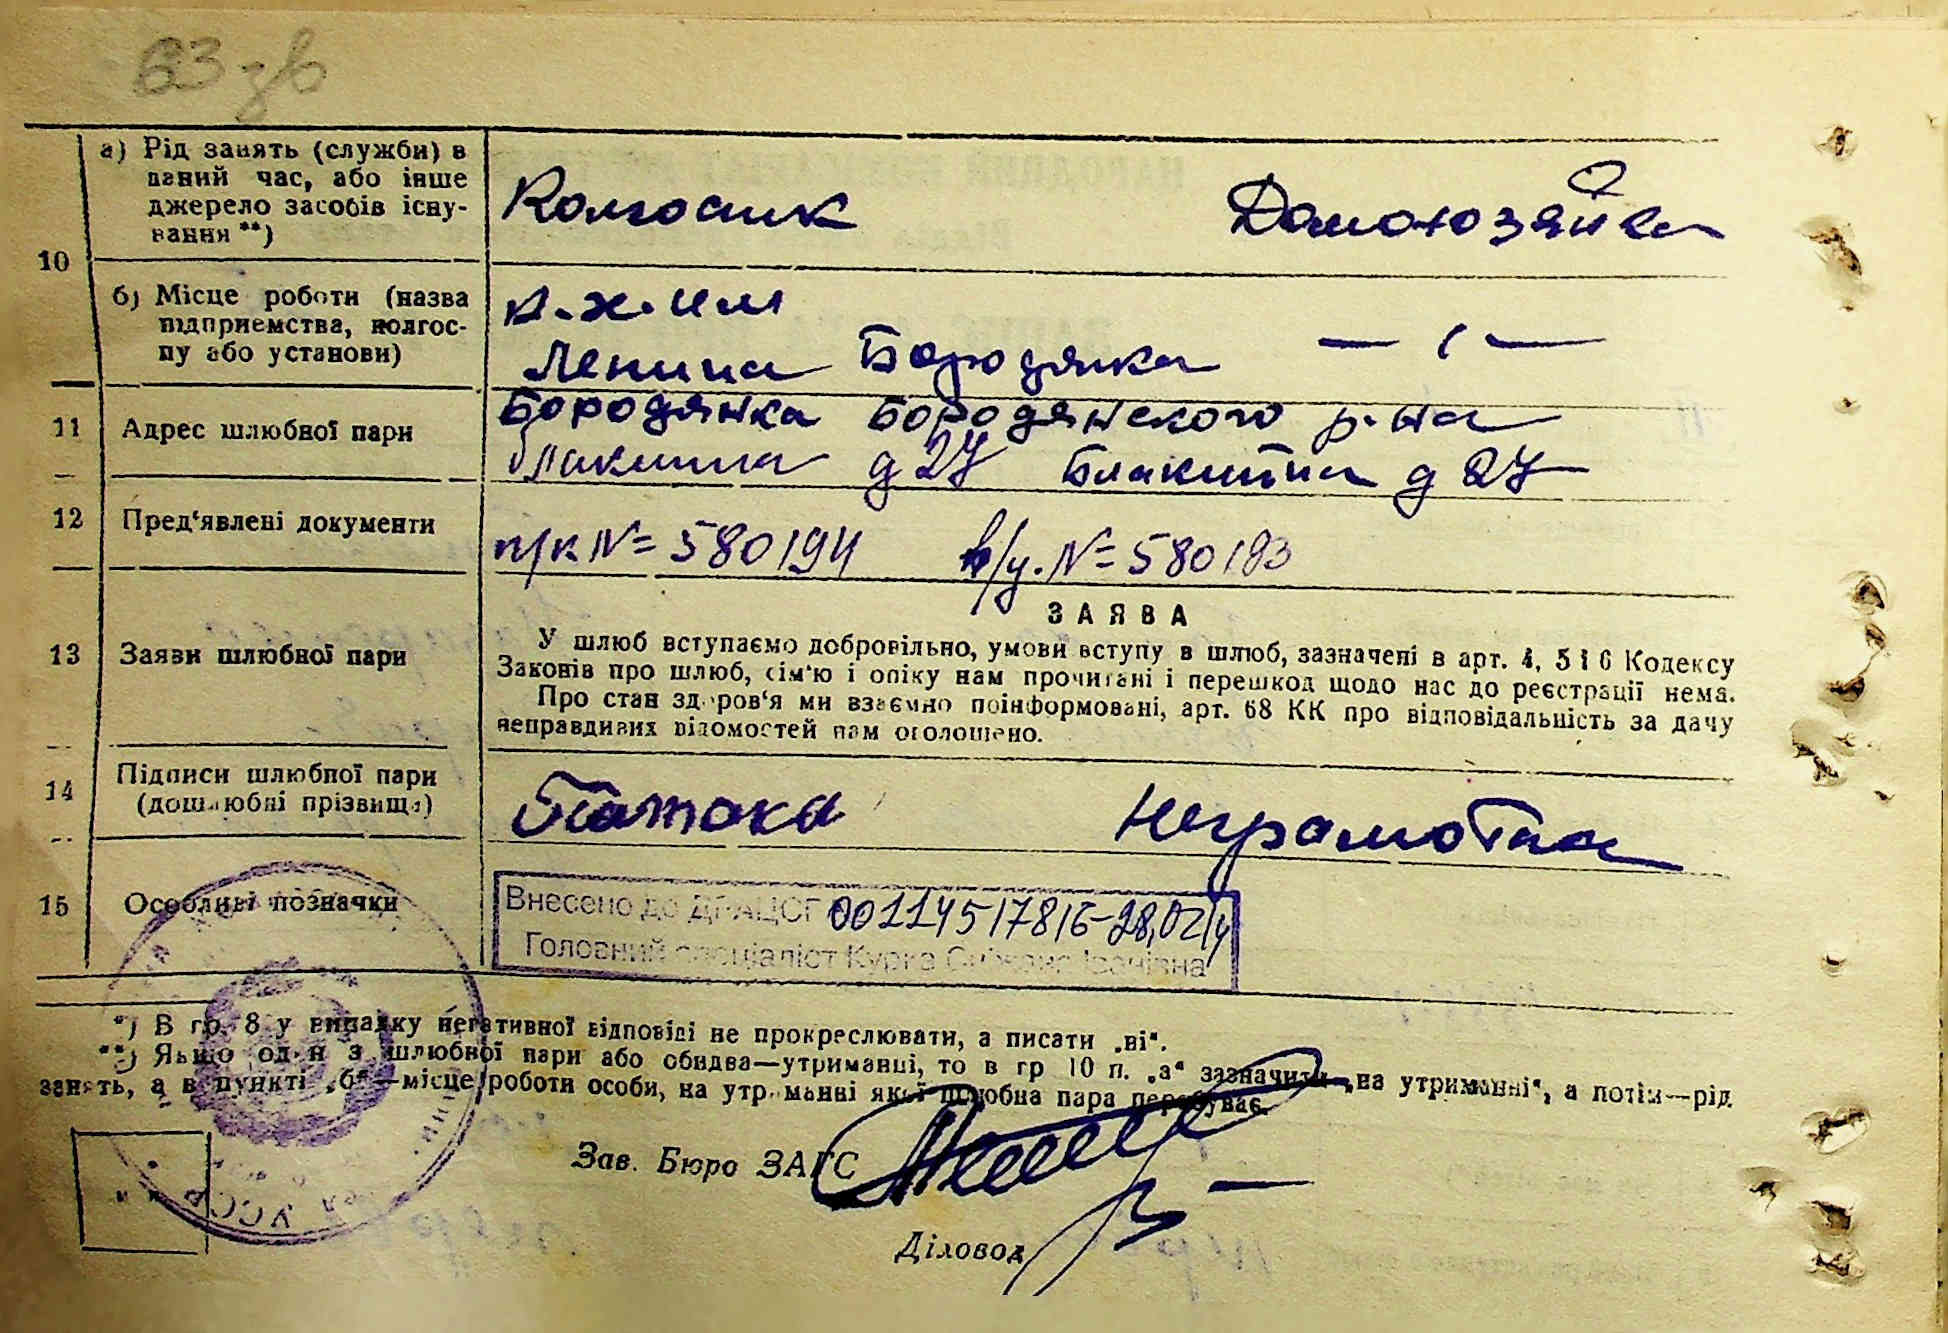 63 зв
10
а) Рід занять (служби) в
даний час, або інше
джерело засобів існу-
вання **)
Колгосник Домохозяйка
б) Місце роботи (назва
підприємства, колгос-
пу або установи)
к-х. им
Ленина Бородянка — —
11 Адрес шлюбної пари
Бородянка Бородянского р-на
Блакитна д 27 Блакитна д 27
12 Пред'явлені документи
п/к № 580194 в/у. № 580193
13 Заяви шлюбної пари
ЗАЯВА
У шлюб вступаємо добровільно, умови вступу в шлюб, зазначені в арт. 4, 5 і 6 Кодексу
Законів про шлюб, сім'ю і опіку нам прочитані і перешкод щодо нас до реєстрації нема.
Про стан здоров'я ми взаємно поінформовані, арт. 68 КК про відповідальність за дачу
неправдивих відомостей нам оголошено.
14 Підписи шлюбної пари
(дошлюбні прізвища)
Патока Неграмотна
15 Особливі позначки
Внесено до ДРАЦСГ 00114517816-28,02
Головний спеціаліст Курка Іванівна
*) В гр. 8 у випадку негативної відповіді не прокреслювати, а писати „ні“.
**) Якщо один з шлюбної пари або обидва—утриманці, то в гр 10 п. „а“ зазначити „на утриманні“, а потім—рід
занять, а в пункті „б“—місце роботи особи, на утриманні якої шлюбна пара перебуває.
Зав. Бюро ЗАГС
Діловод
УССР